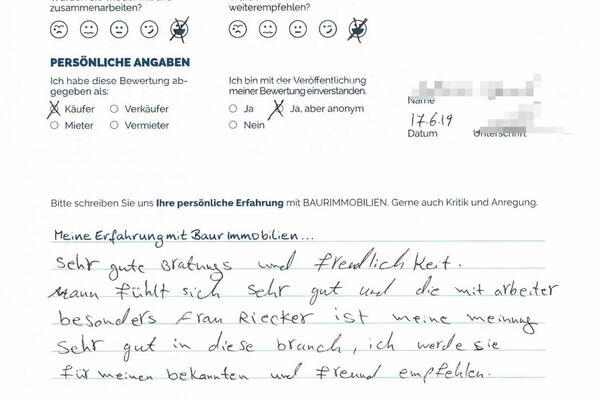 zusammenarbeiten?
weiterempfehlen?
PERSÖNLICHE ANGABEN
Ich habe diese Bewertung ab-
gegeben als:
Käufer
Verkäufer
Mieter
Vermieter
Ich bin mit der Veröffentlichung
meiner Bewertung einverstanden.
Ja
Ja, aber anonym
Nein
Name
17.6.19
Datum
Unterschrift
Bitte schreiben Sie uns Ihre persönliche Erfahrung mit BAURIMMOBILIEN. Gerne auch Kritik und Anregung.
Meine Erfahrung mit Baur Immobilien...
Sehr gute Bratungs und freundlichkeit.
Mann fühlt sich sehr gut und die mit arbeiter
besonders Frau Riecker ist meine meinung
Sehr gut in diese branch, ich werde sie
für meinen bekannten und freund empfehlen.